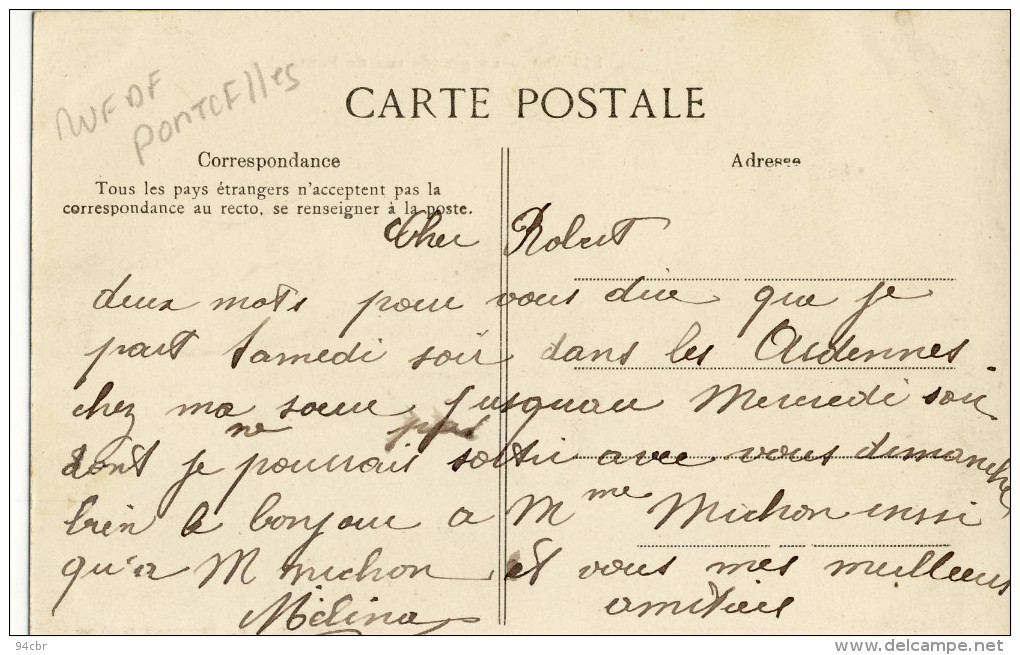 RUE DE
PONTCElles
CARTE POSTALE
Correspondance
Adresse
Tous les pays étrangers n'acceptent pas la
correspondance au recto, se renseigner à la poste.
Cher Robert
deux mots pour vous dire que je
part Samedi soir dans les Ardennes
chez ma sœur jusquau Mercredi soir
dont je ne pourrais pas sortir avec vous dimanche
bien le bonjour a Mme Michon inssi
qu'a M michon et vous mes meilleurs
amitiés
Mélina
94cbr
delcampe.net